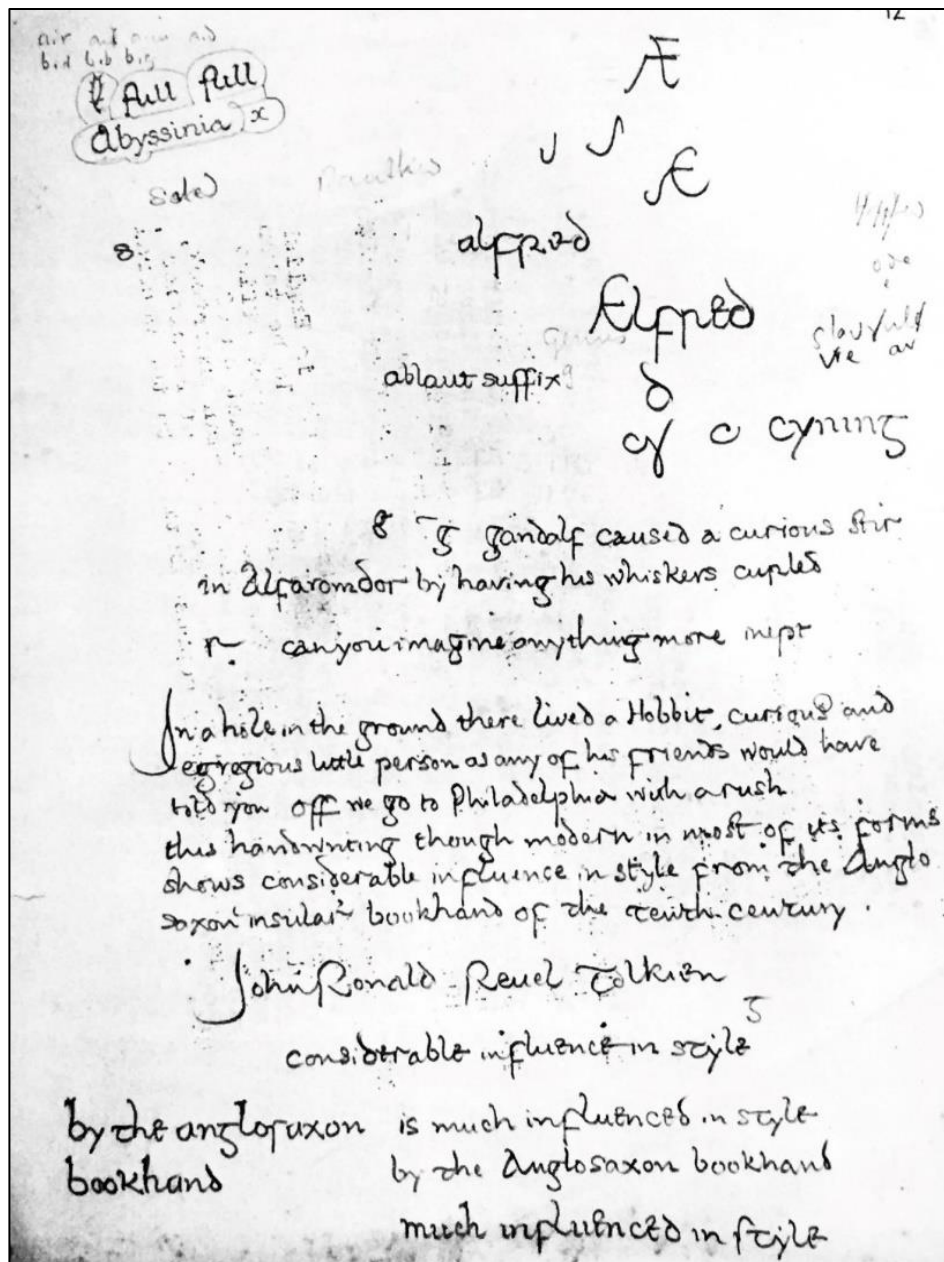 12
air aid aim aid
bid bib big
full full
Abyssinia x
Æ
Æ
sole
alfred
8
Ælfred
ablaut suffix g
d
cy c cyning
g g gandalf caused a curious stir
in by having his whiskers cupled
r can you imagine anything more inept
In a hole in the ground there lived a Hobbit, curious and
egregious little person as any of his friends would have
told you off we go to Philadelphia with a rush
this handwriting though modern in most of its forms
shows considerable influence in style from the Anglo
saxon insular bookhand of the tenth century.
John Ronald Reuel Tolkien
considerable influence in style
by the anglosaxon
bookhand
is much influenced in style
by the Anglosaxon bookhand
much influenced in style